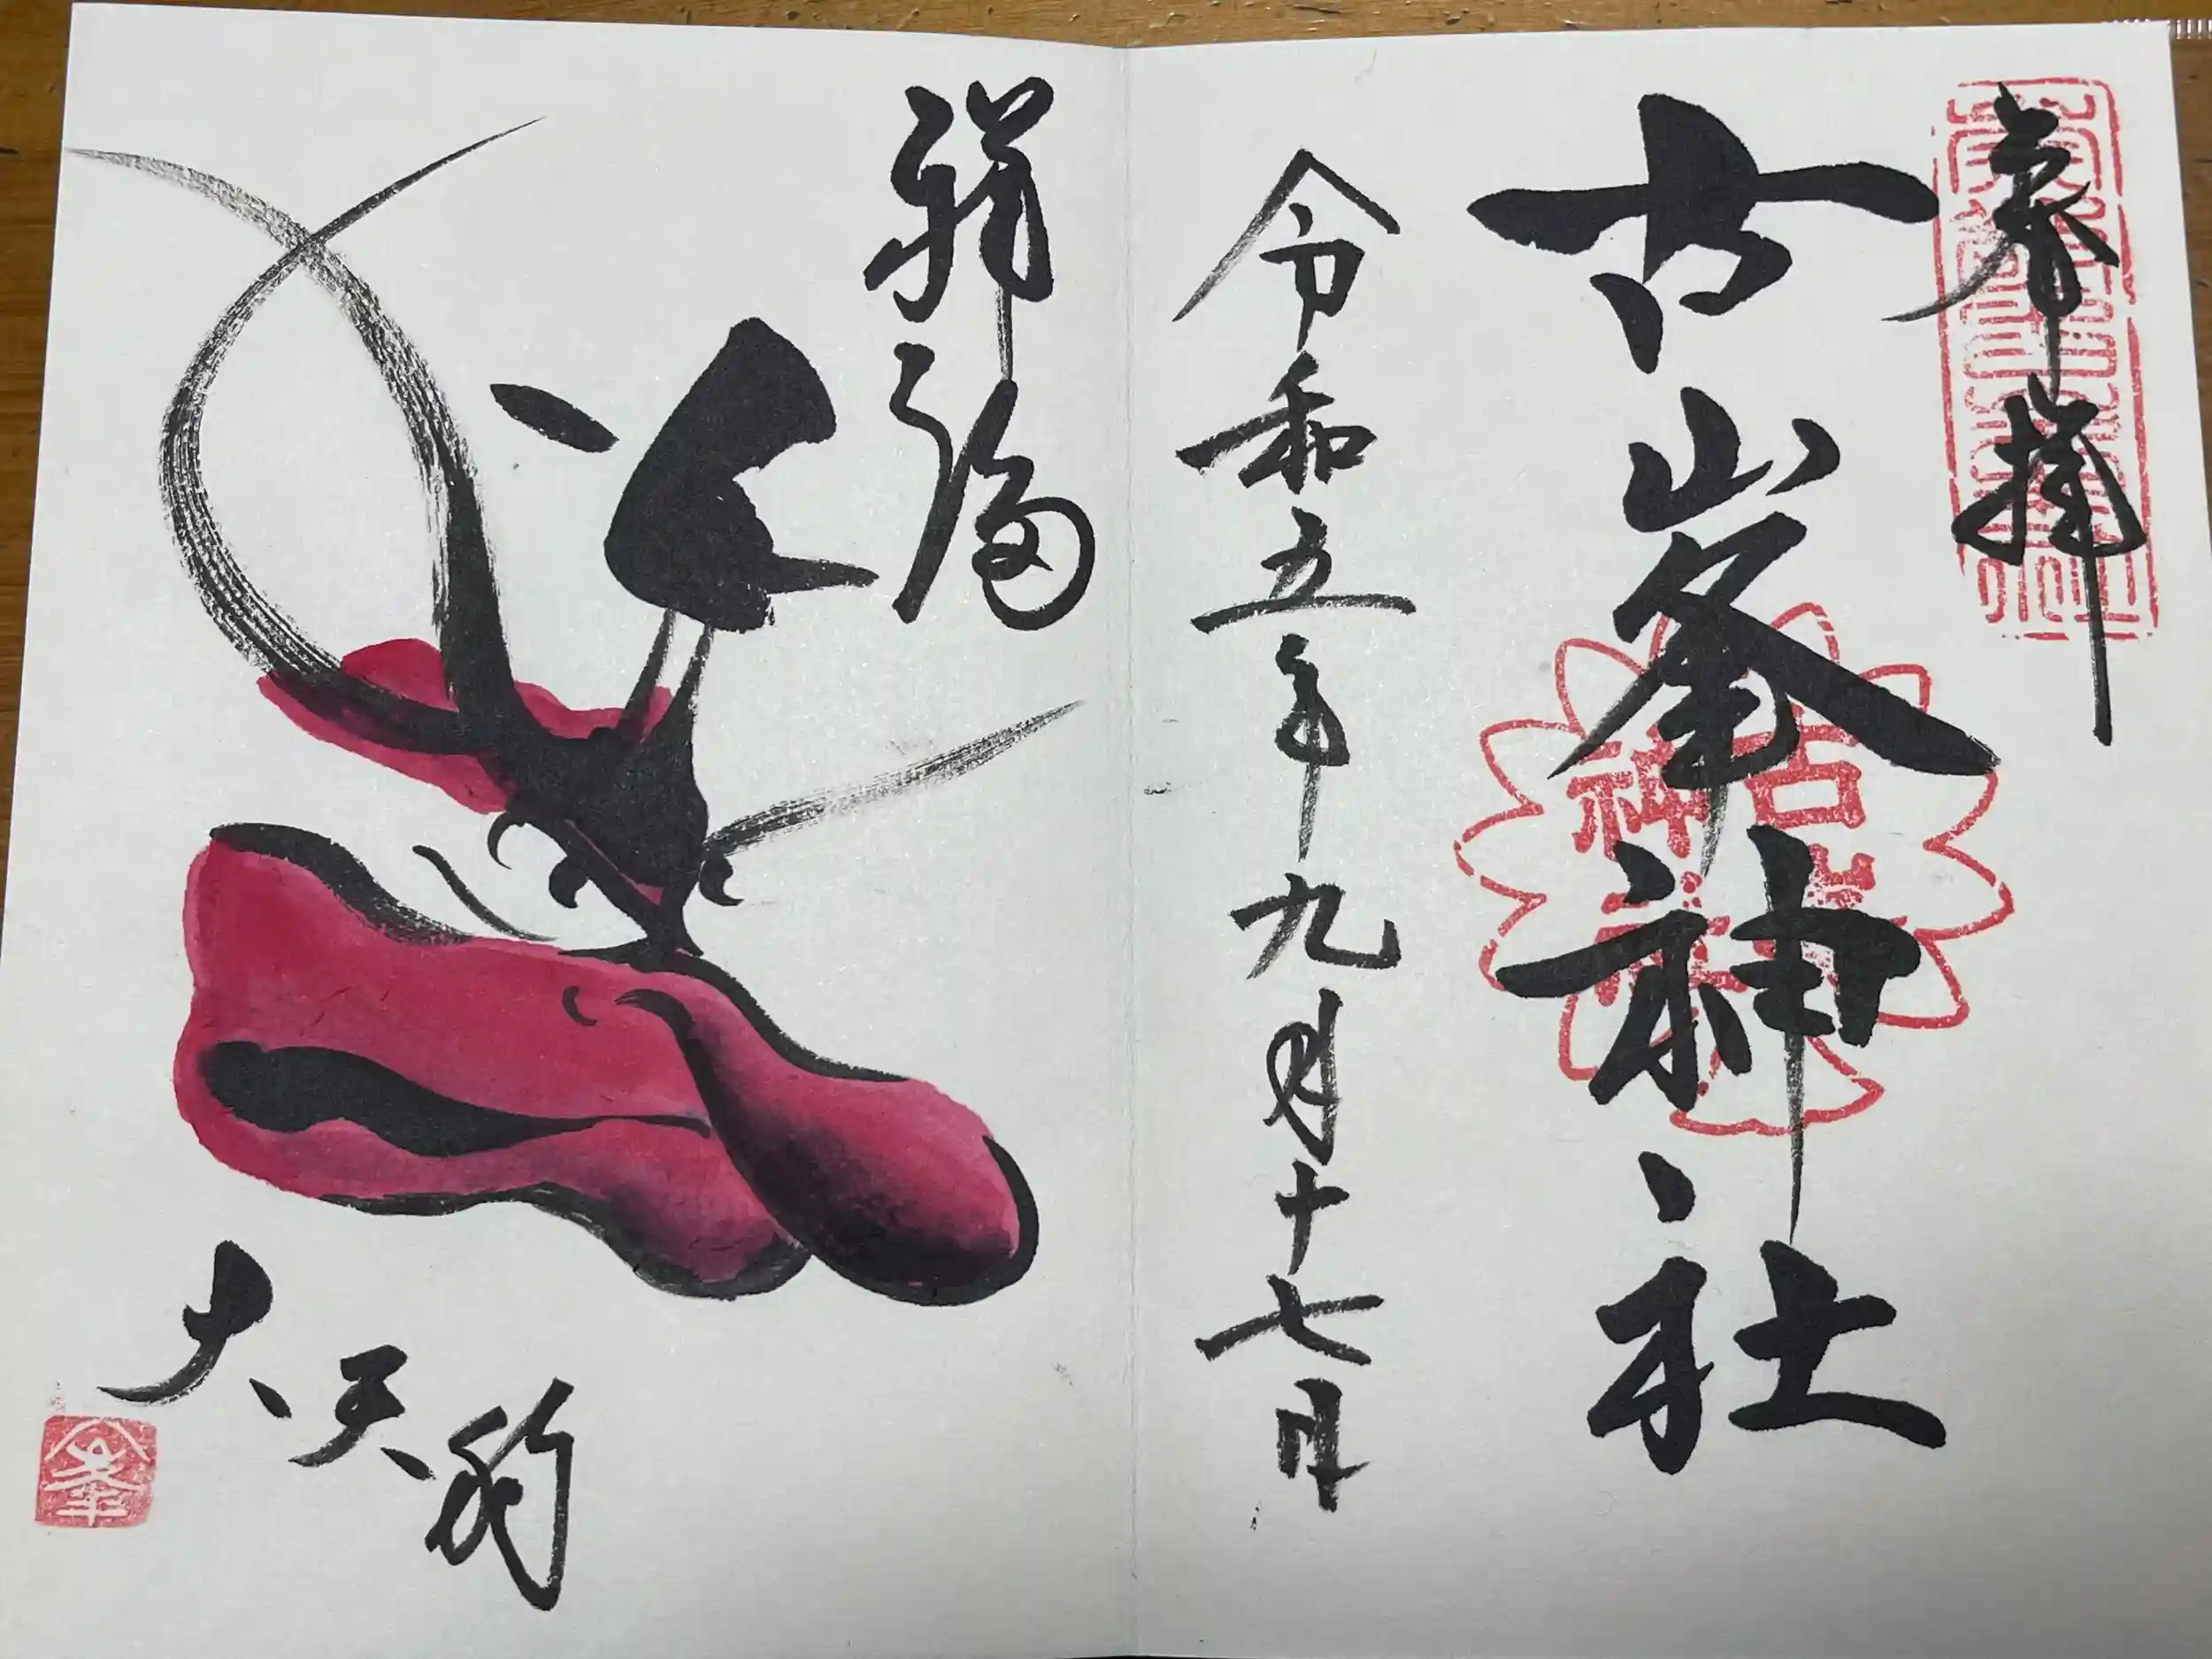 奉拝
古峯神社
令和五年九月十七日
祥福
大天狗
古峯神社
峯